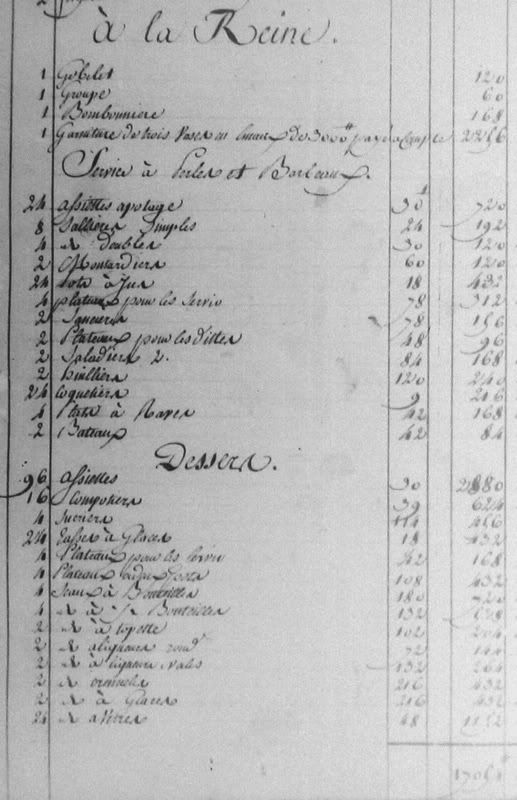 à la Reine.
1 Gobelet 120
1 Groupe 60
1 Bombonniere 168
1 Garniture de trois Vases en de 3000 # compte 2256
Service à Perles et Barbeaux.
24 assiettes apotage 30 # 720
8 Sallieres Simples 24 192
4 d° doubles 30 120
2 Moutardiers 60 120
24 pots à Jus 18 432
4 plateaux pour les Servir 78 312
2 Sauciers 78 156
2 Plateaux pour les dittes 48 96
2 Saladiers 2. 84 168
2 huilliers 120 240
24 Coquetiers 9 216
4 Plats à Raves 42 168
2 Bateaux 42 84
Dessers.
96 assiettes 30 2880
16 Compotiers 39 624
4 Sucriers 114 456
24 Tasses à Glaces 18 432
4 Plateaux pour les Servir 42 168
4 Plateaux 108 432
4 Seaux à Bouteilles 180 720
4 d° à ½ Bouteilles 132 528
2 d° à topette 102 204
2 d° aliqueurs rond 72 144
2 d° à liqueurs ovales 132 264
2 d° crennelés 216 432
2 d° à Glaces 216 432
24 d° averres 48 1152